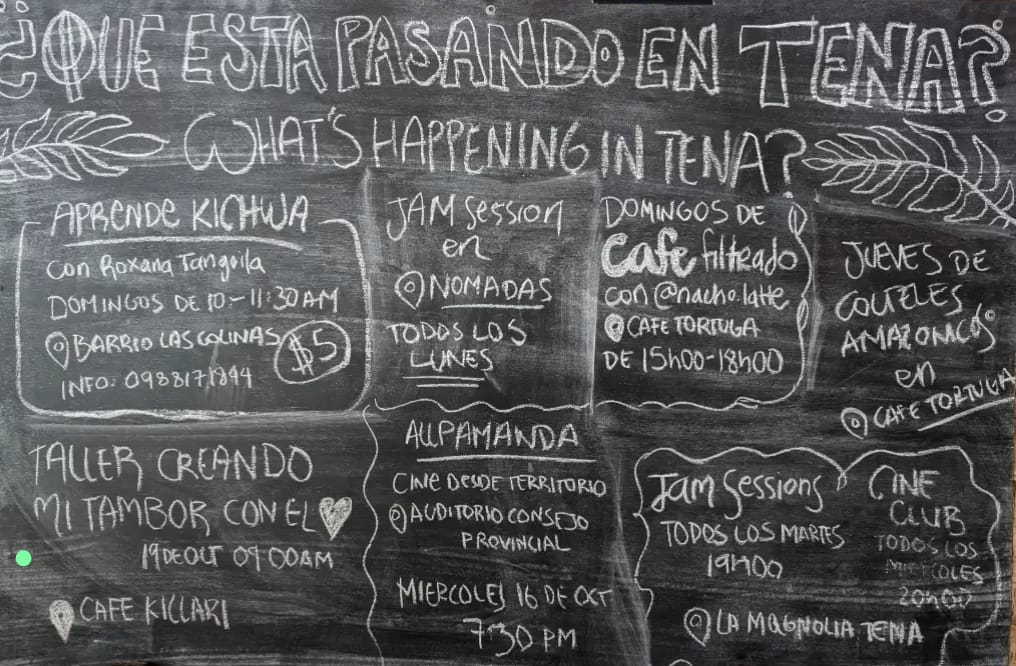 ¿QUE ESTA PASANDO EN TENA?
WHAT'S HAPPENING IN TENA?
APRENDE KICHWA
con Roxana Tanguila
DOMINGOS DE 10-11:30AM
BARRIO LAS COLINAS
$5
INFO: 0988171844
JAM Session
en
NOMADAS
TODOS LOS
LUNES
DOMINGOS DE
Cafe filtrado
con @nacho.latte
CAFE TORTUGA
DE 15h00-18h00
JUEVES DE
COCTELES
AMAZONICOS
en
CAFE TORTUGA
TALLER CREANDO
MI TAMBOR CON EL
19 DE OCT 09:00AM
CAFE KILLARI
ALLPAMANDA
CINE DESDE TERRITORIO
AUDITORIO CONSEJO
PROVINCIAL
MIERCOLES 16 DE OCT
7:30 PM
Jam Sessions
TODOS LOS MARTES
19H00
CINE
CLUB
TODOS LOS
MIERCOLES
20h00
LA MAGNOLIA TENA